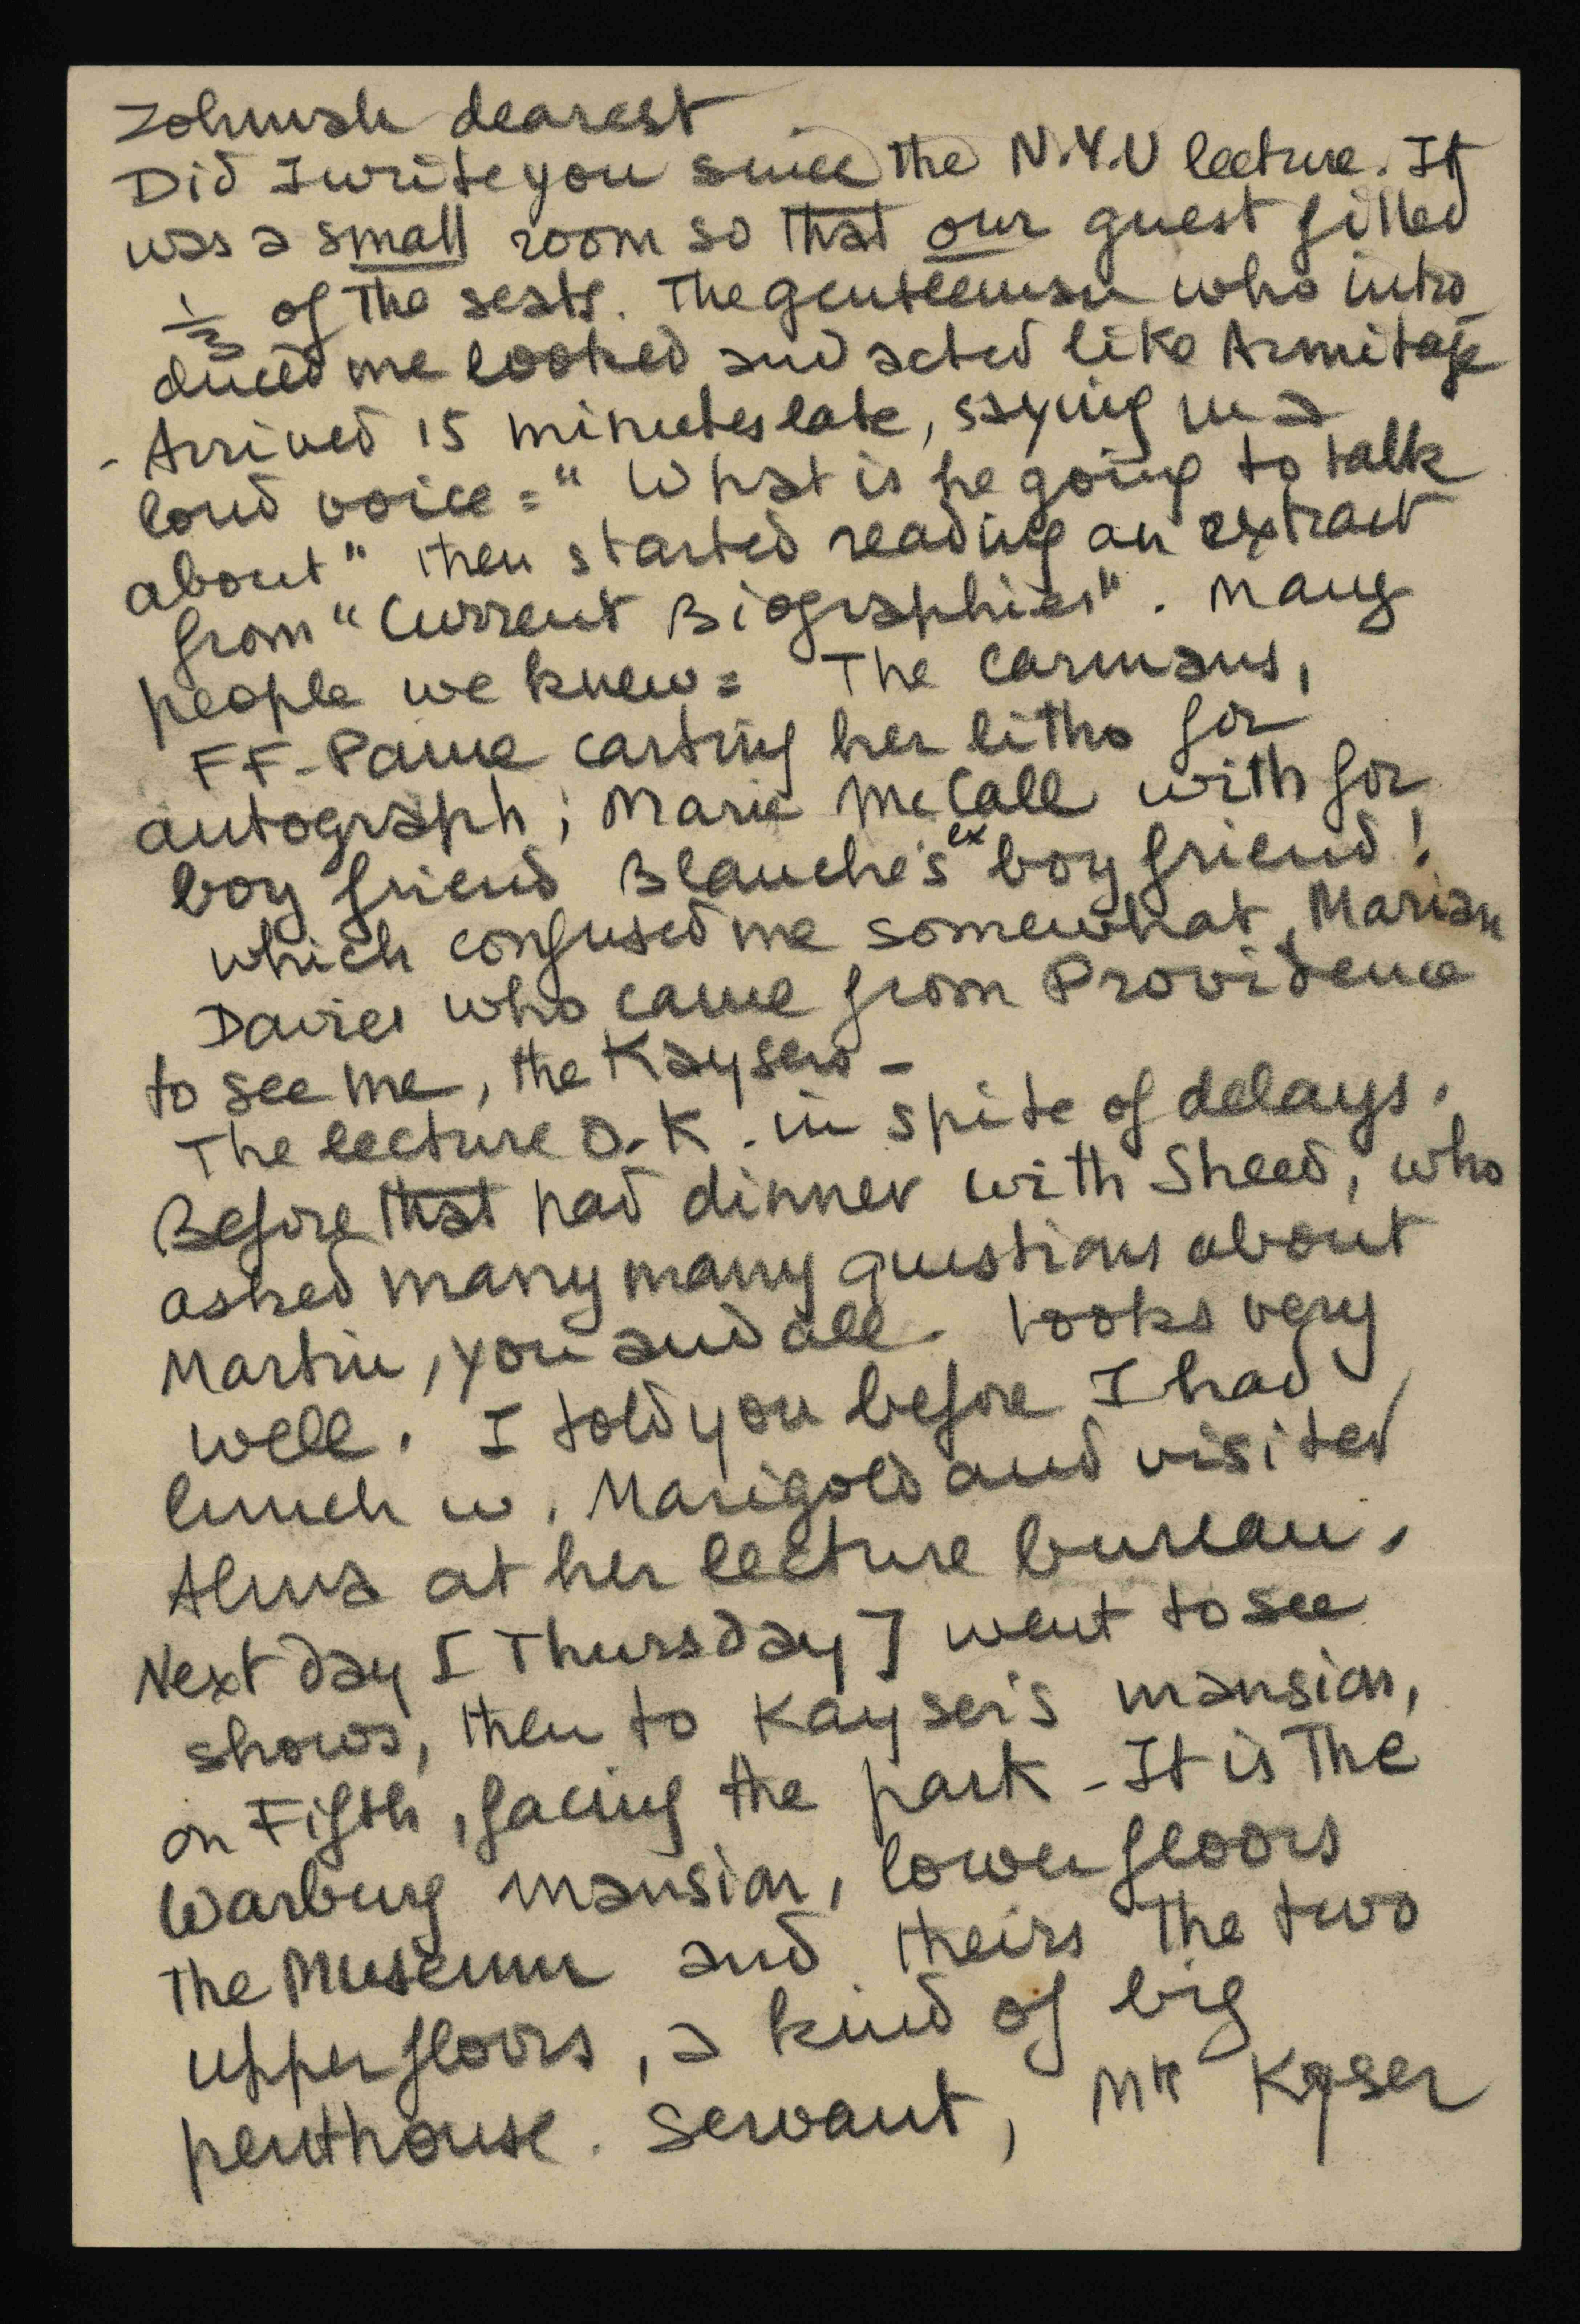 Zohmah dearest
Did I write you since the N.Y.U lecture. It
was a small room so that our guest filled
1/3 of the seats. The gentleeman who intro
duced me looked and acted like Armitage
- Arrived 15 minutes late, saying in a
loud voice = " What is he going to talk
about" then started reading an extract
from "Current Biographies". Many
people we knew = The Carmans,
FF-Paine carting her litho for
autograph; Marie McCall with for
boy friend Blanche's ex boy friend!
which confused me somewhat, Marian
Davies who came from Providence
to see me, the Kaysers -
The lecture O.K. in spite of delays.
Before that had dinner with Sheed, who
asked many many questions about
Martin, you and all. Looks very
well. I told you before I had
lunch w. Marigold and visited
Alma at her lecture bureau.
Next day [Thursday] went to see
shows, then to Kayser's mansion,
on Fifth, facing the park - It is The
Warburg mansion, lower floors
the Museum and theirs the two
upper floors, a kind of big
penthouse. Servant, Mr Kyser